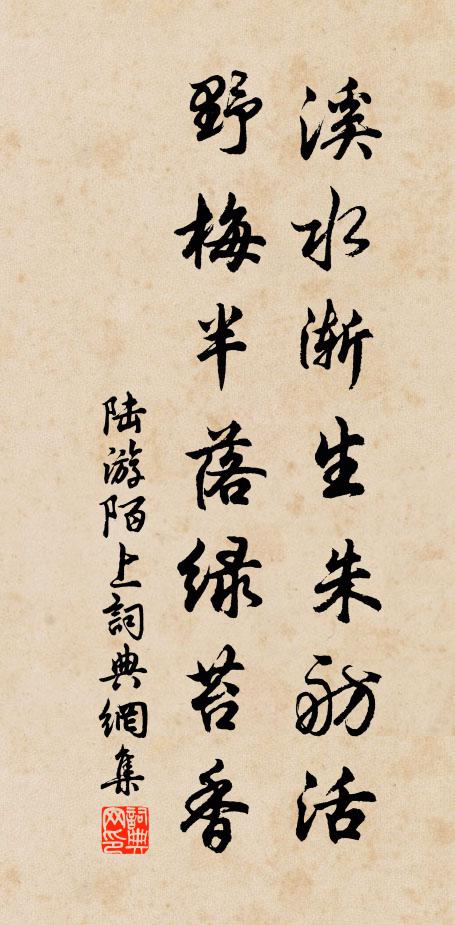 溪水渐生朱舫活
野梅半落绿苔香
陆游陌上詞典網集
詞典网印